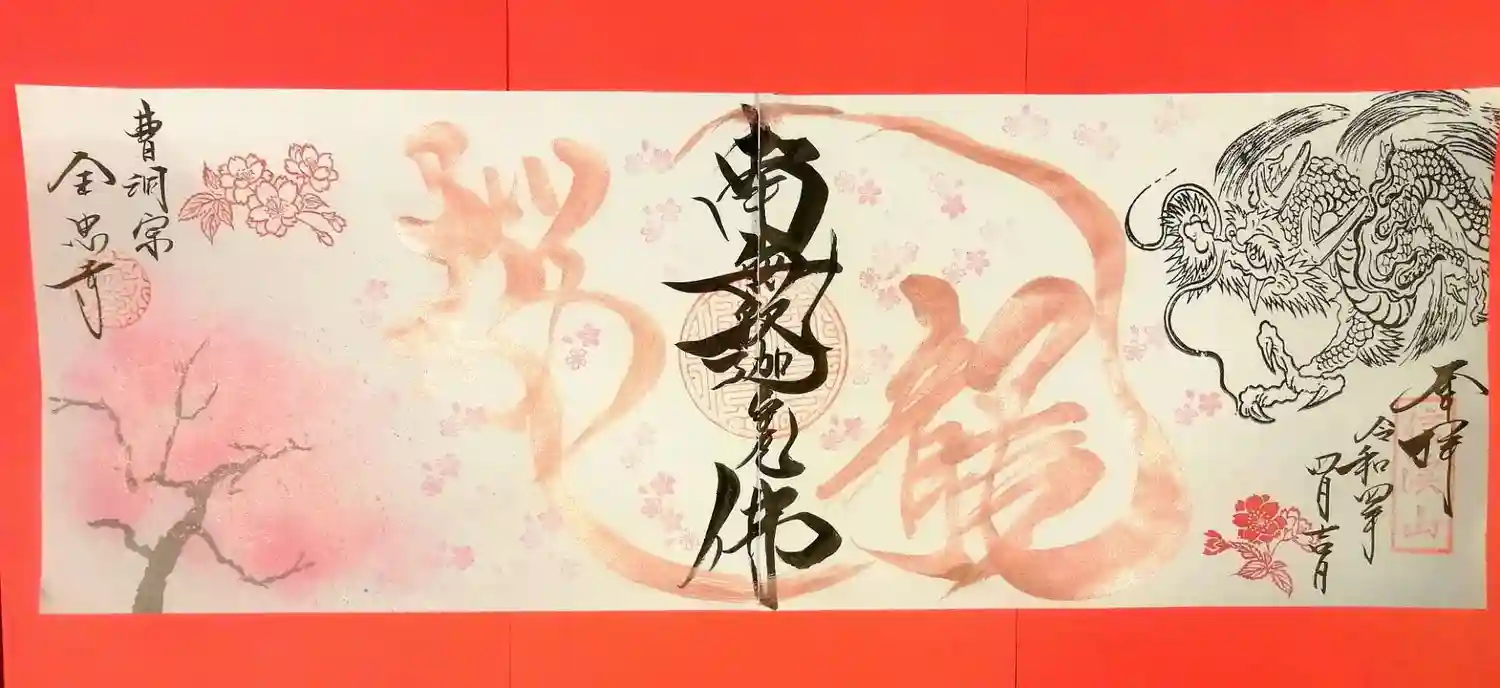 奉拝
令和四年
四月吉日
龍
南無釈迦牟尼佛
曹洞宗
全忠寺